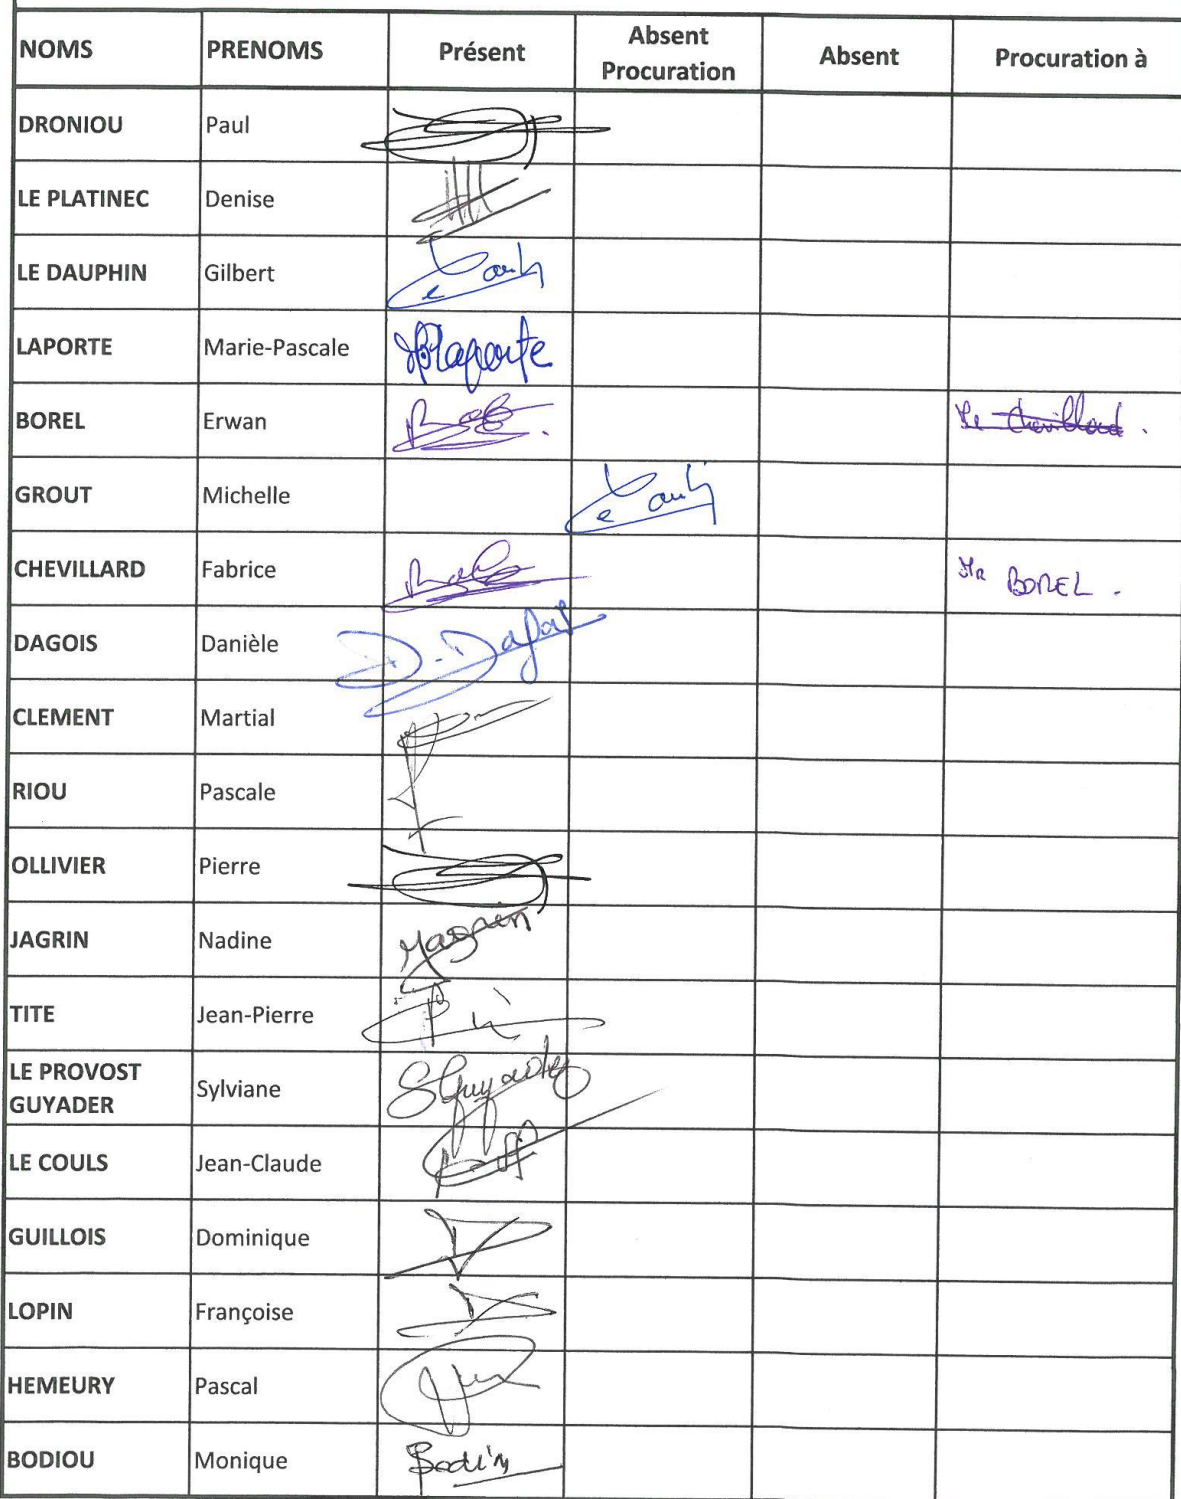 NOMS PRENOMS Présent Absent Procuration Absent Procuration à
DRONIOU Paul
LE PLATINEC Denise
LE DAUPHIN Gilbert
LAPORTE Marie-Pascale MPLaporte
BOREL Erwan
GROUT Michelle
CHEVILLARD Fabrice Mr BOREL.
DAGOIS Danièle D. Dagois
CLEMENT Martial
RIOU Pascale
OLLIVIER Pierre
JAGRIN Nadine Jagrin
TITE Jean-Pierre
LE PROVOST
GUYADER Sylviane SGuyader
LE COULS Jean-Claude
GUILLOIS Dominique
LOPIN Françoise
HEMEURY Pascal
BODIOU Monique